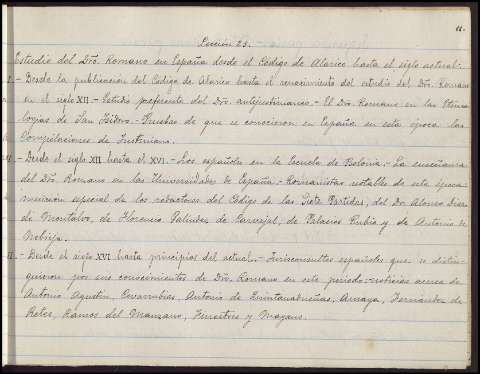 11.
Lección 23.
Estudio del Dro. Romano en España desde el Código de Alarico hasta el siglo actual.-
I.- Desde la publicación del Código de Alarico hasta el renacimiento del estudio del Dro. Romano
en el siglo XII.- Estudio preferente del Dro. antejustinianeo.- El Dro. Romano en las Etimo-
logías de San Isidoro.- Pruebas de que se conocieron en España en esta época las
Compilaciones de Justiniano.
II.- Desde el siglo XII hasta el XVI.- Los españoles en la Escuela de Bolonia.- La enseñanza
del Dro. Romano en las Universidades de España.- Romanistas notables de esta época:
mención especial de los redactores del Código de las Siete Partidas, del Dr. Alonso Diaz
de Montalvo, de Florencio Palindez de Carvajal, de Palacios Rubio y de Antonio de
Nebrija.
III.- Desde el siglo XVI hasta principios del actual.- Jurisconsultos españoles que se distin-
guieron por sus conocimientos de Dro. Romano en este periodo:- noticias acerca de
Antonio Agustin, Covarrubias, Antonio de Quintanadueñas, Amaya, Fernandez de
Retes, Ramos del Manzano, Finestres y Mayans.